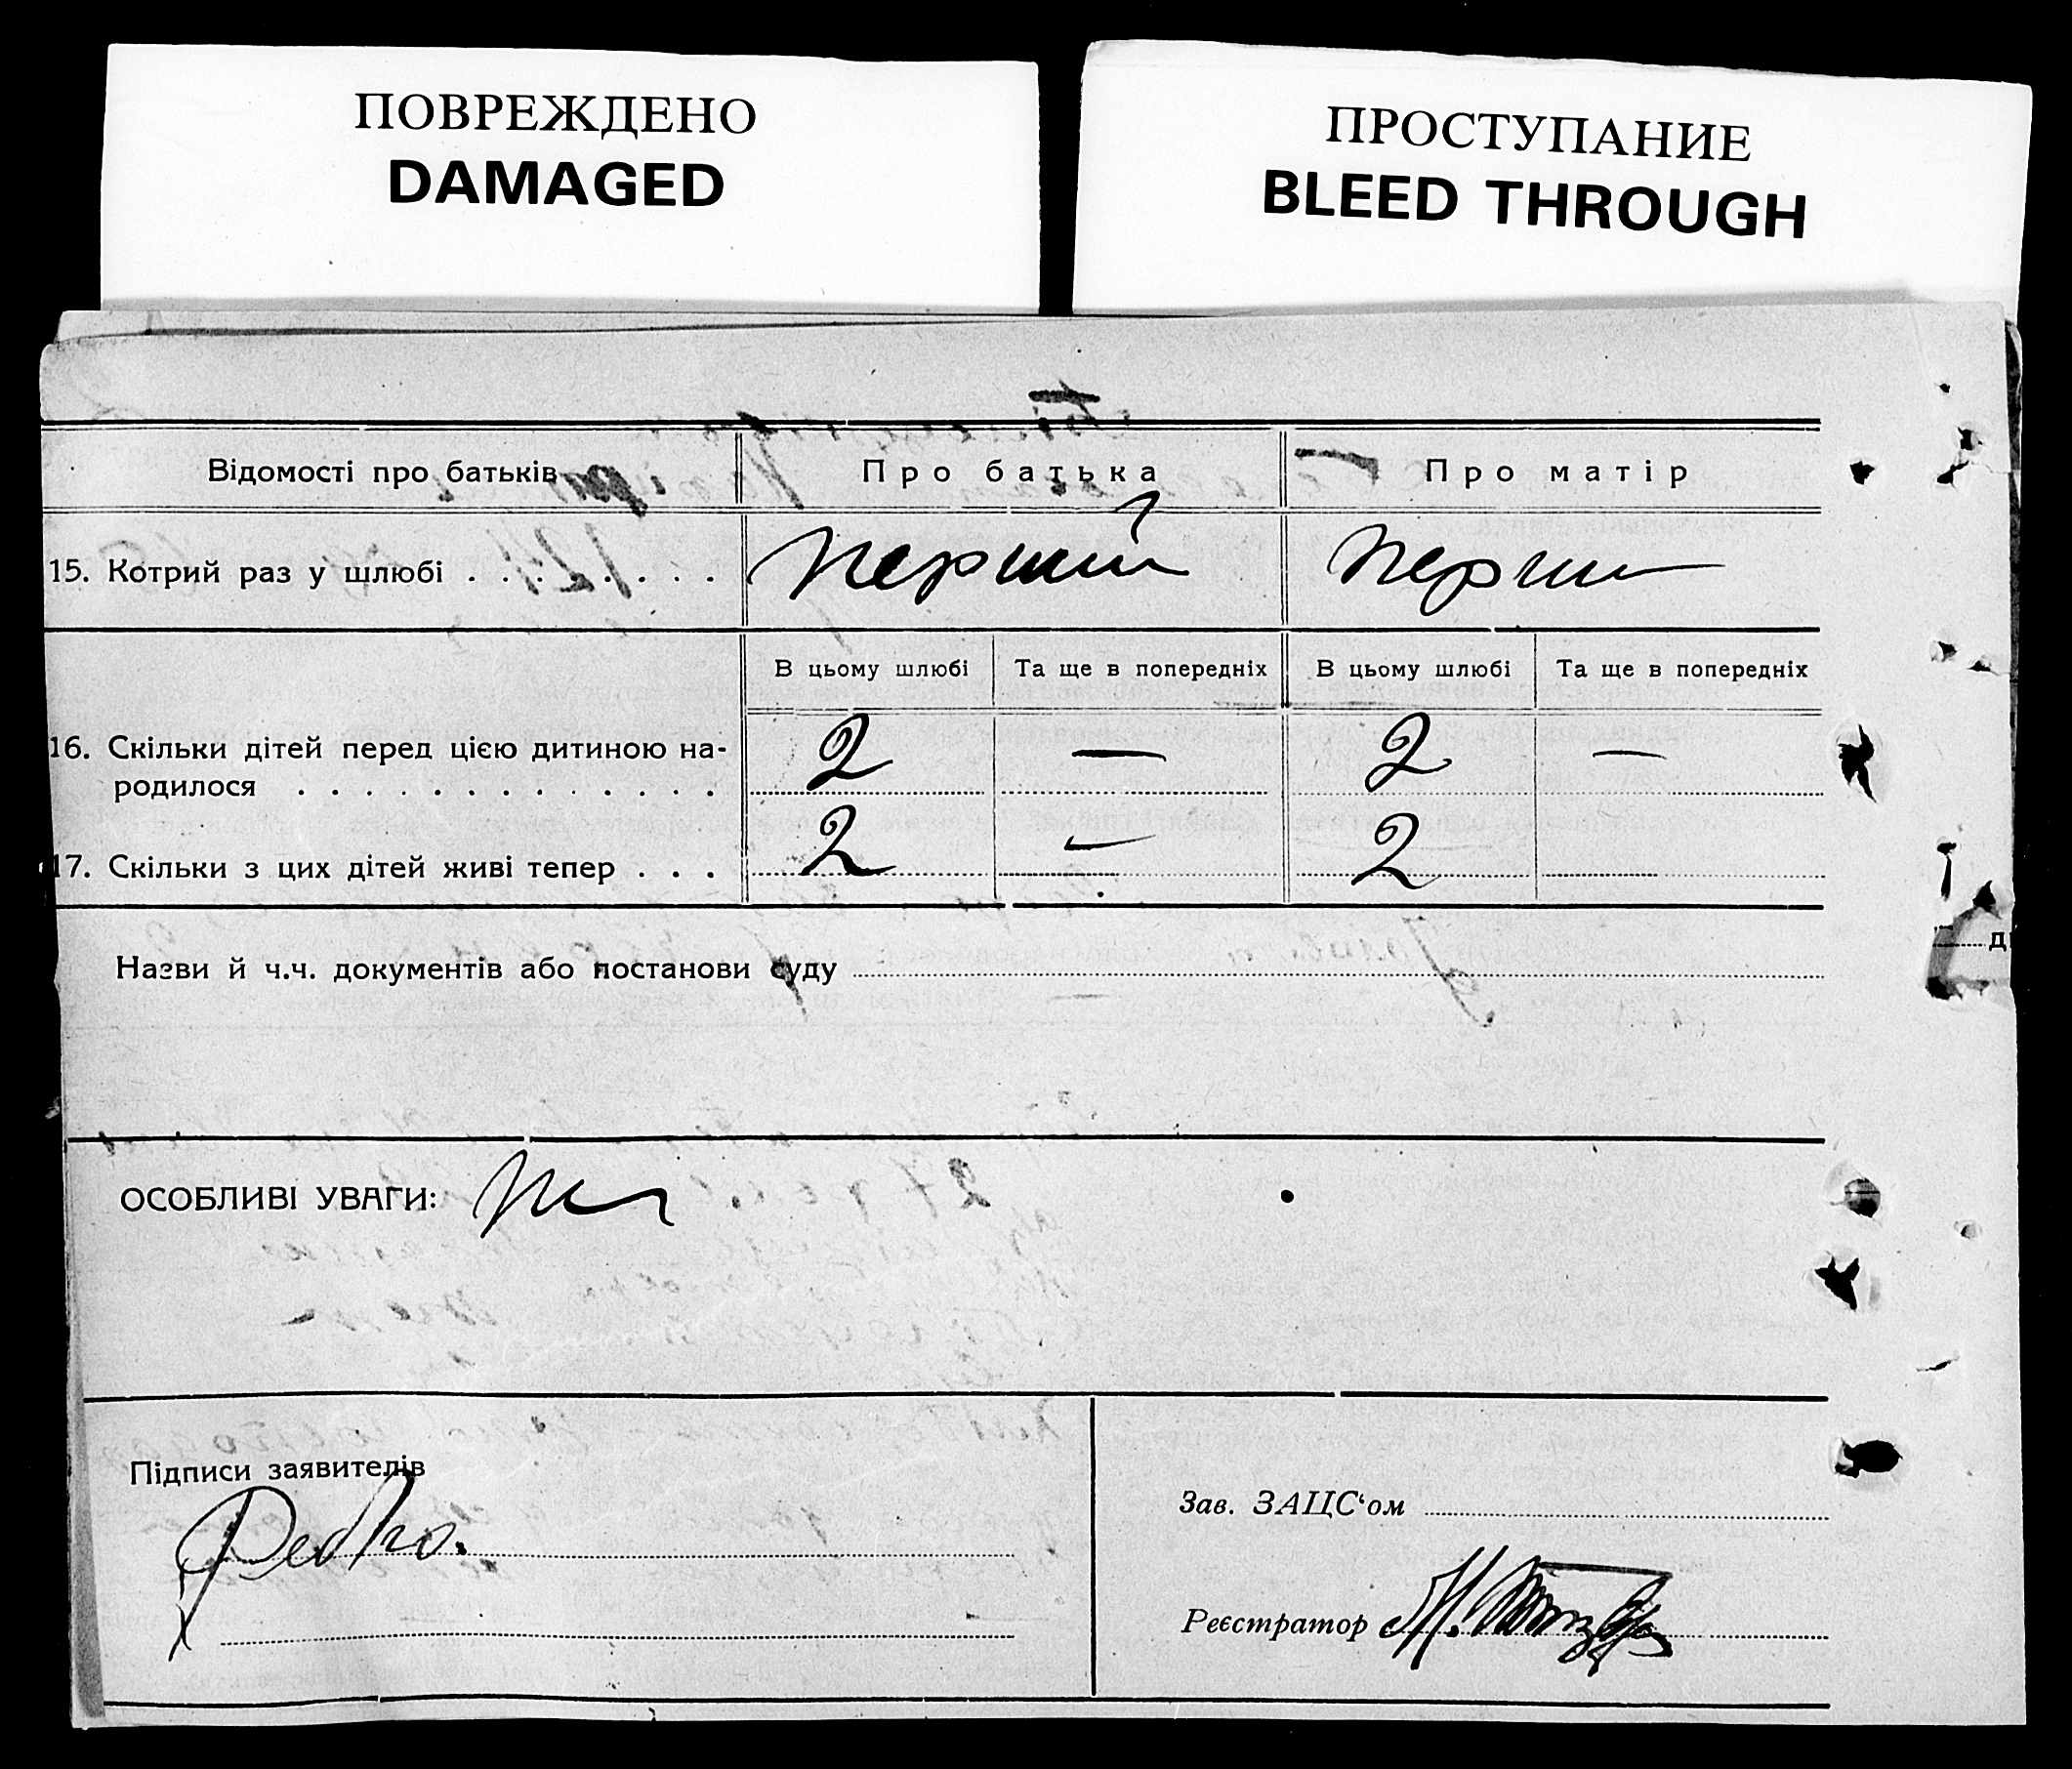 ПОВРЕЖДЕНО
DAMAGED
ПРОСТУПАНИЕ
BLEED THROUGH
Відомості про батьків Про батька Про матір
15. Котрий раз у шлюбі . . . . . . . . перший перши
В цьому шлюбі Та ще в попередніх В цьому шлюбі Та ще в попередніх
16. Скільки дітей перед цією дитиною на-
родилося . . . . . . . . . . . . . 2 — 2 —
17. Скільки з цих дітей живі тепер . . . 2 — 2
Назви й ч.ч. документів або постанови суду
ОСОБЛИВІ УВАГИ:
Підписи заявителів
Редко.
Зав. ЗАЦС‘ом
Реєстратор